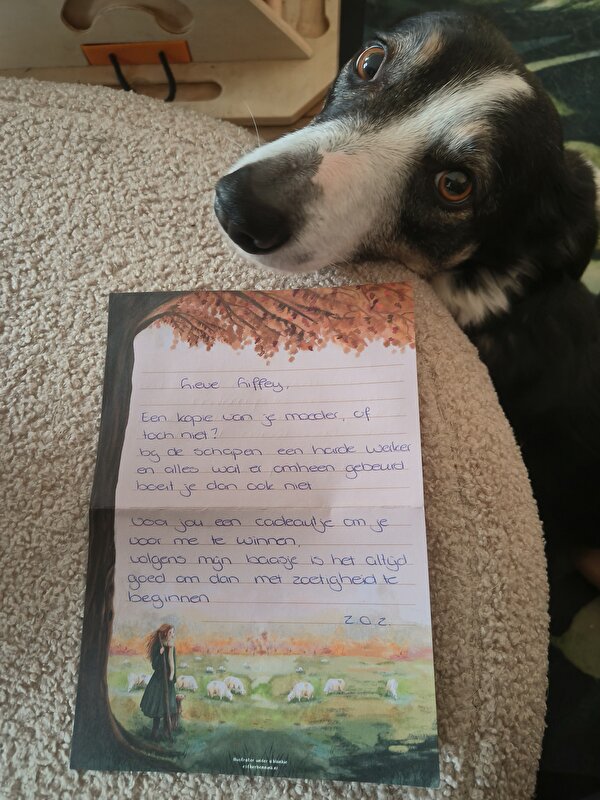 Lieve Liffey,
Een kopie van je moeder, of
toch niet?
bij de schapen een harde werker
en alles wat er omheen gebeurd
boeit je dan ook niet
voor jou een cadeautje om je
voor me te winnen,
volgens mijn baasje is het altijd
goed om dan met zoetigheid te
beginnen
Z.O.Z.